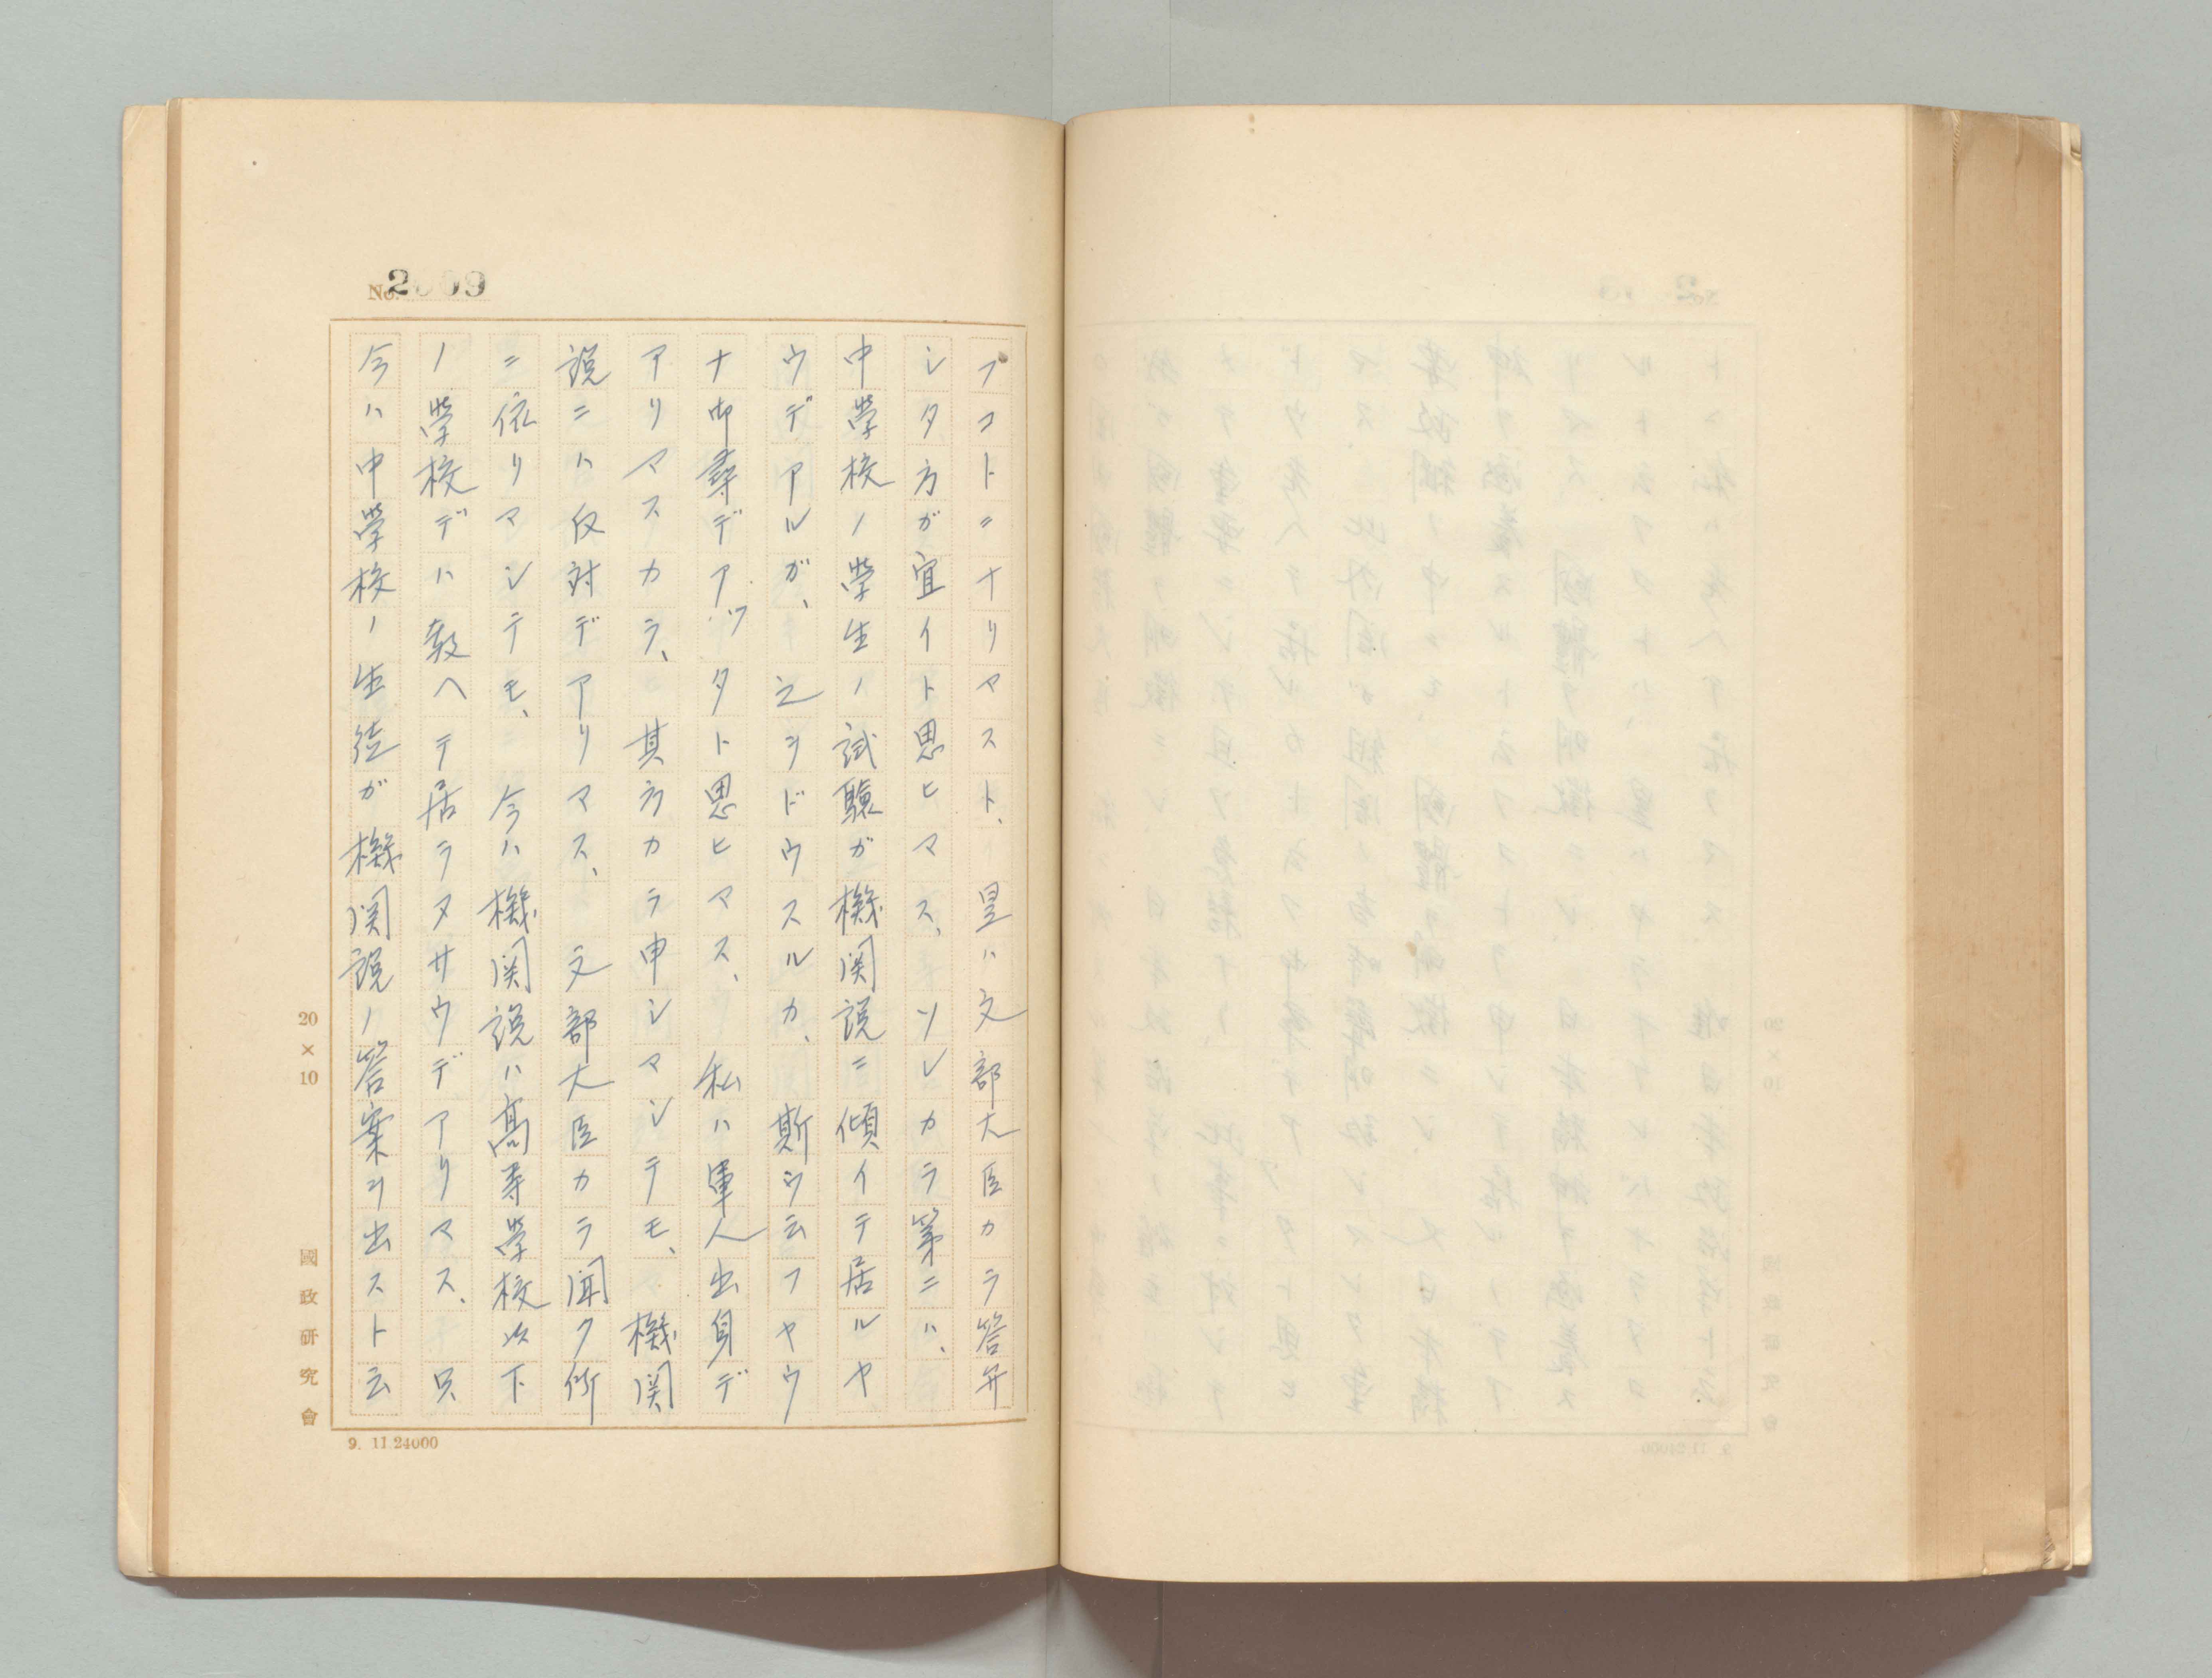 No. 2009
フコトニナリマスト、是ハ文部大臣カラ答弁
シタ方ガ宜イト思ヒマス、ソレカラ第二ハ、
中學校ノ學生ノ試驗ガ機関説ニ傾イテ居ルヤ
ウデアルガ、之ヲドウスルカ、斯ウ云フヤウ
ナ御尋デアッタト思ヒマス、私ハ軍人出身デ
アリマスカラ、其方カラ申シマシテモ、機関
説ニハ反対デアリマス、文部大臣カラ聞ク所
ニ依リマシテモ、今ハ機関説ハ高等學校以下
ノ學校デハ教ヘテ居ラヌサウデアリマス、只
今ハ中學校ノ生徒ガ機関説ノ答案ヲ出スト云
20×10
國政研究會
9. 11.24000